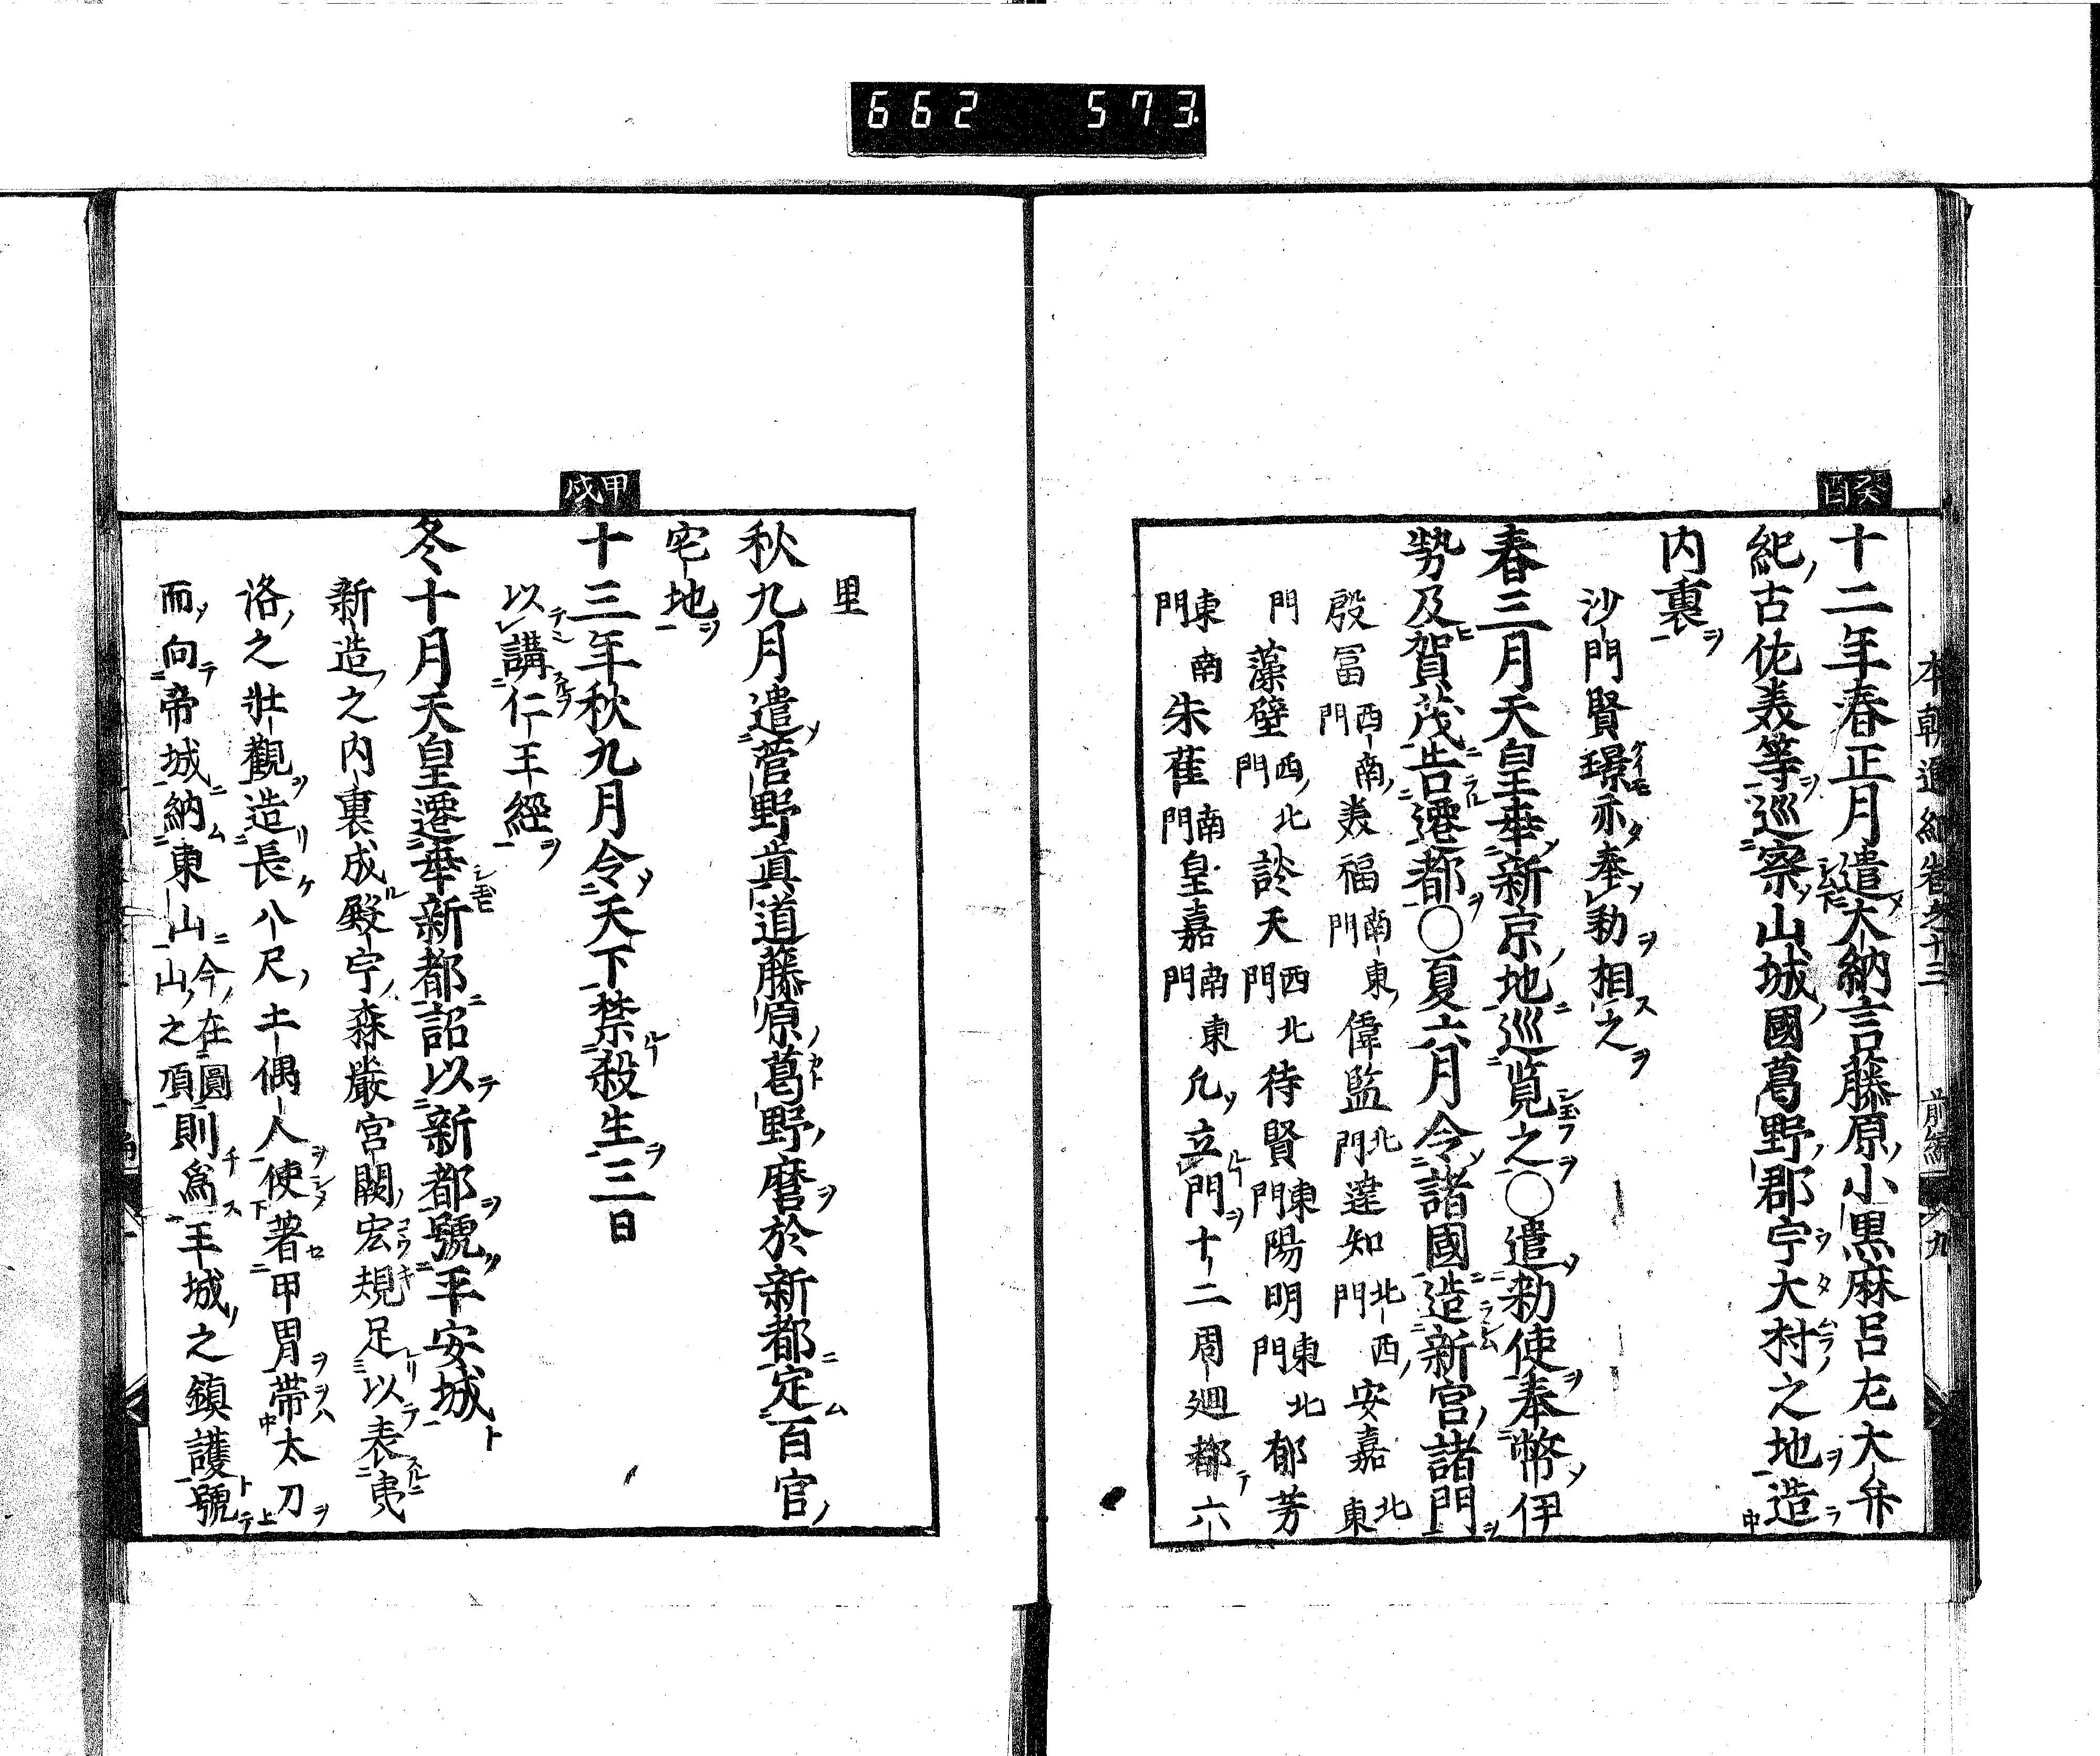 662 573
本朝通紀卷之十二 前編 九
癸酉
十二年春正月遣大納言藤原小黒麻呂左大弁
紀古佐美等巡察山城國葛野郡宇大村之地造
内裏
沙門賢璟亦奉勅相之
春三月天皇幸新京地巡覧之○遣勅使奉幣伊
勢及賀茂告遷都○夏六月令諸國造新宮諸門
殷冨門西南美福門南東偉監門北達知門北西安嘉北東
門藻壁門西北談天門西北待賢門東陽明門東北郁芳
門東南朱雀門南皇嘉門南東凡立門十二周廻都六
里
秋九月遣菅野眞道藤原葛野麿於新都定百官
宅地
甲戌
十三年秋九月令天下禁殺生三日
以講仁王經
冬十月天皇遷幸新都詔以新都號平安城
新造之内裏成殿宇森嚴宮闕宏規足以表夷
洛之壯觀造長八尺土偶人使著甲冑帶太刀
而向帝城納東山今在圓山之頂則爲王城之鎮護號